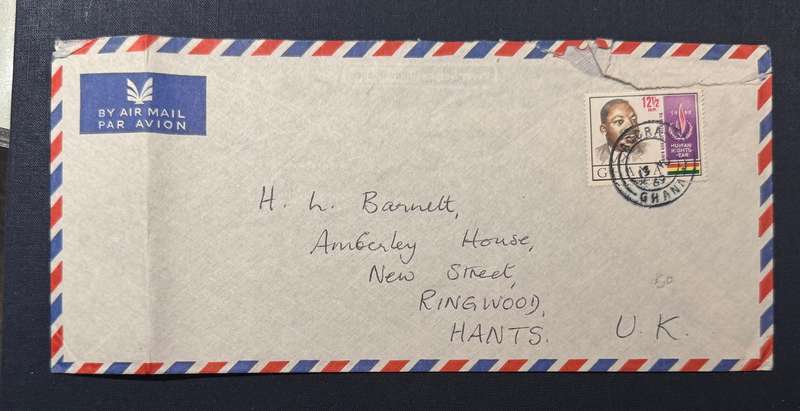 BY AIR MAIL
PAR AVION
12½
NP.
1968
HUMAN
RIGHTS
YEAR
ACCRA
GHANA
H. L. Barnett,
Amberley House,
New Street,
RINGWOOD,
HANTS. U.K.
50